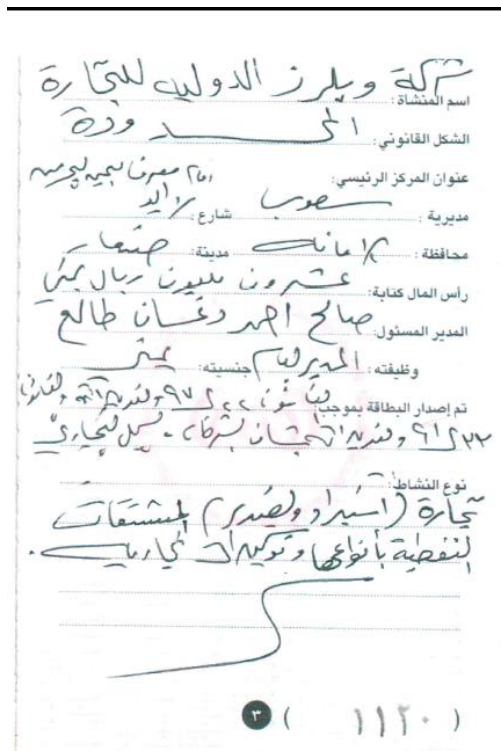 اسم المنشأة: شركة ويلرز الدولية للتجارة
الشكل القانوني: المحدودة
عنوان المركز الرئيسي: امام
مديرية: شعوب شارع: زايد
محافظة: الامانة مدينة: صنعاء
رأس المال كتابة: عشرون مليون ريال يمني
المدير المسئول: صالح احمد دغسان طالع
وظيفته: المدير العام جنسيته: يمني
تم إصدار البطاقة بموجب: ٢٢ ل ٩٧ والقانون
٣٣ ل ٩١ بشأن السجل التجاري
نوع النشاط:
تجارة (استيراد وتصدير) المشتقات
النفطية بأنواعها والتوكيلات التجارية.
( ١١٢٠ ) ٣